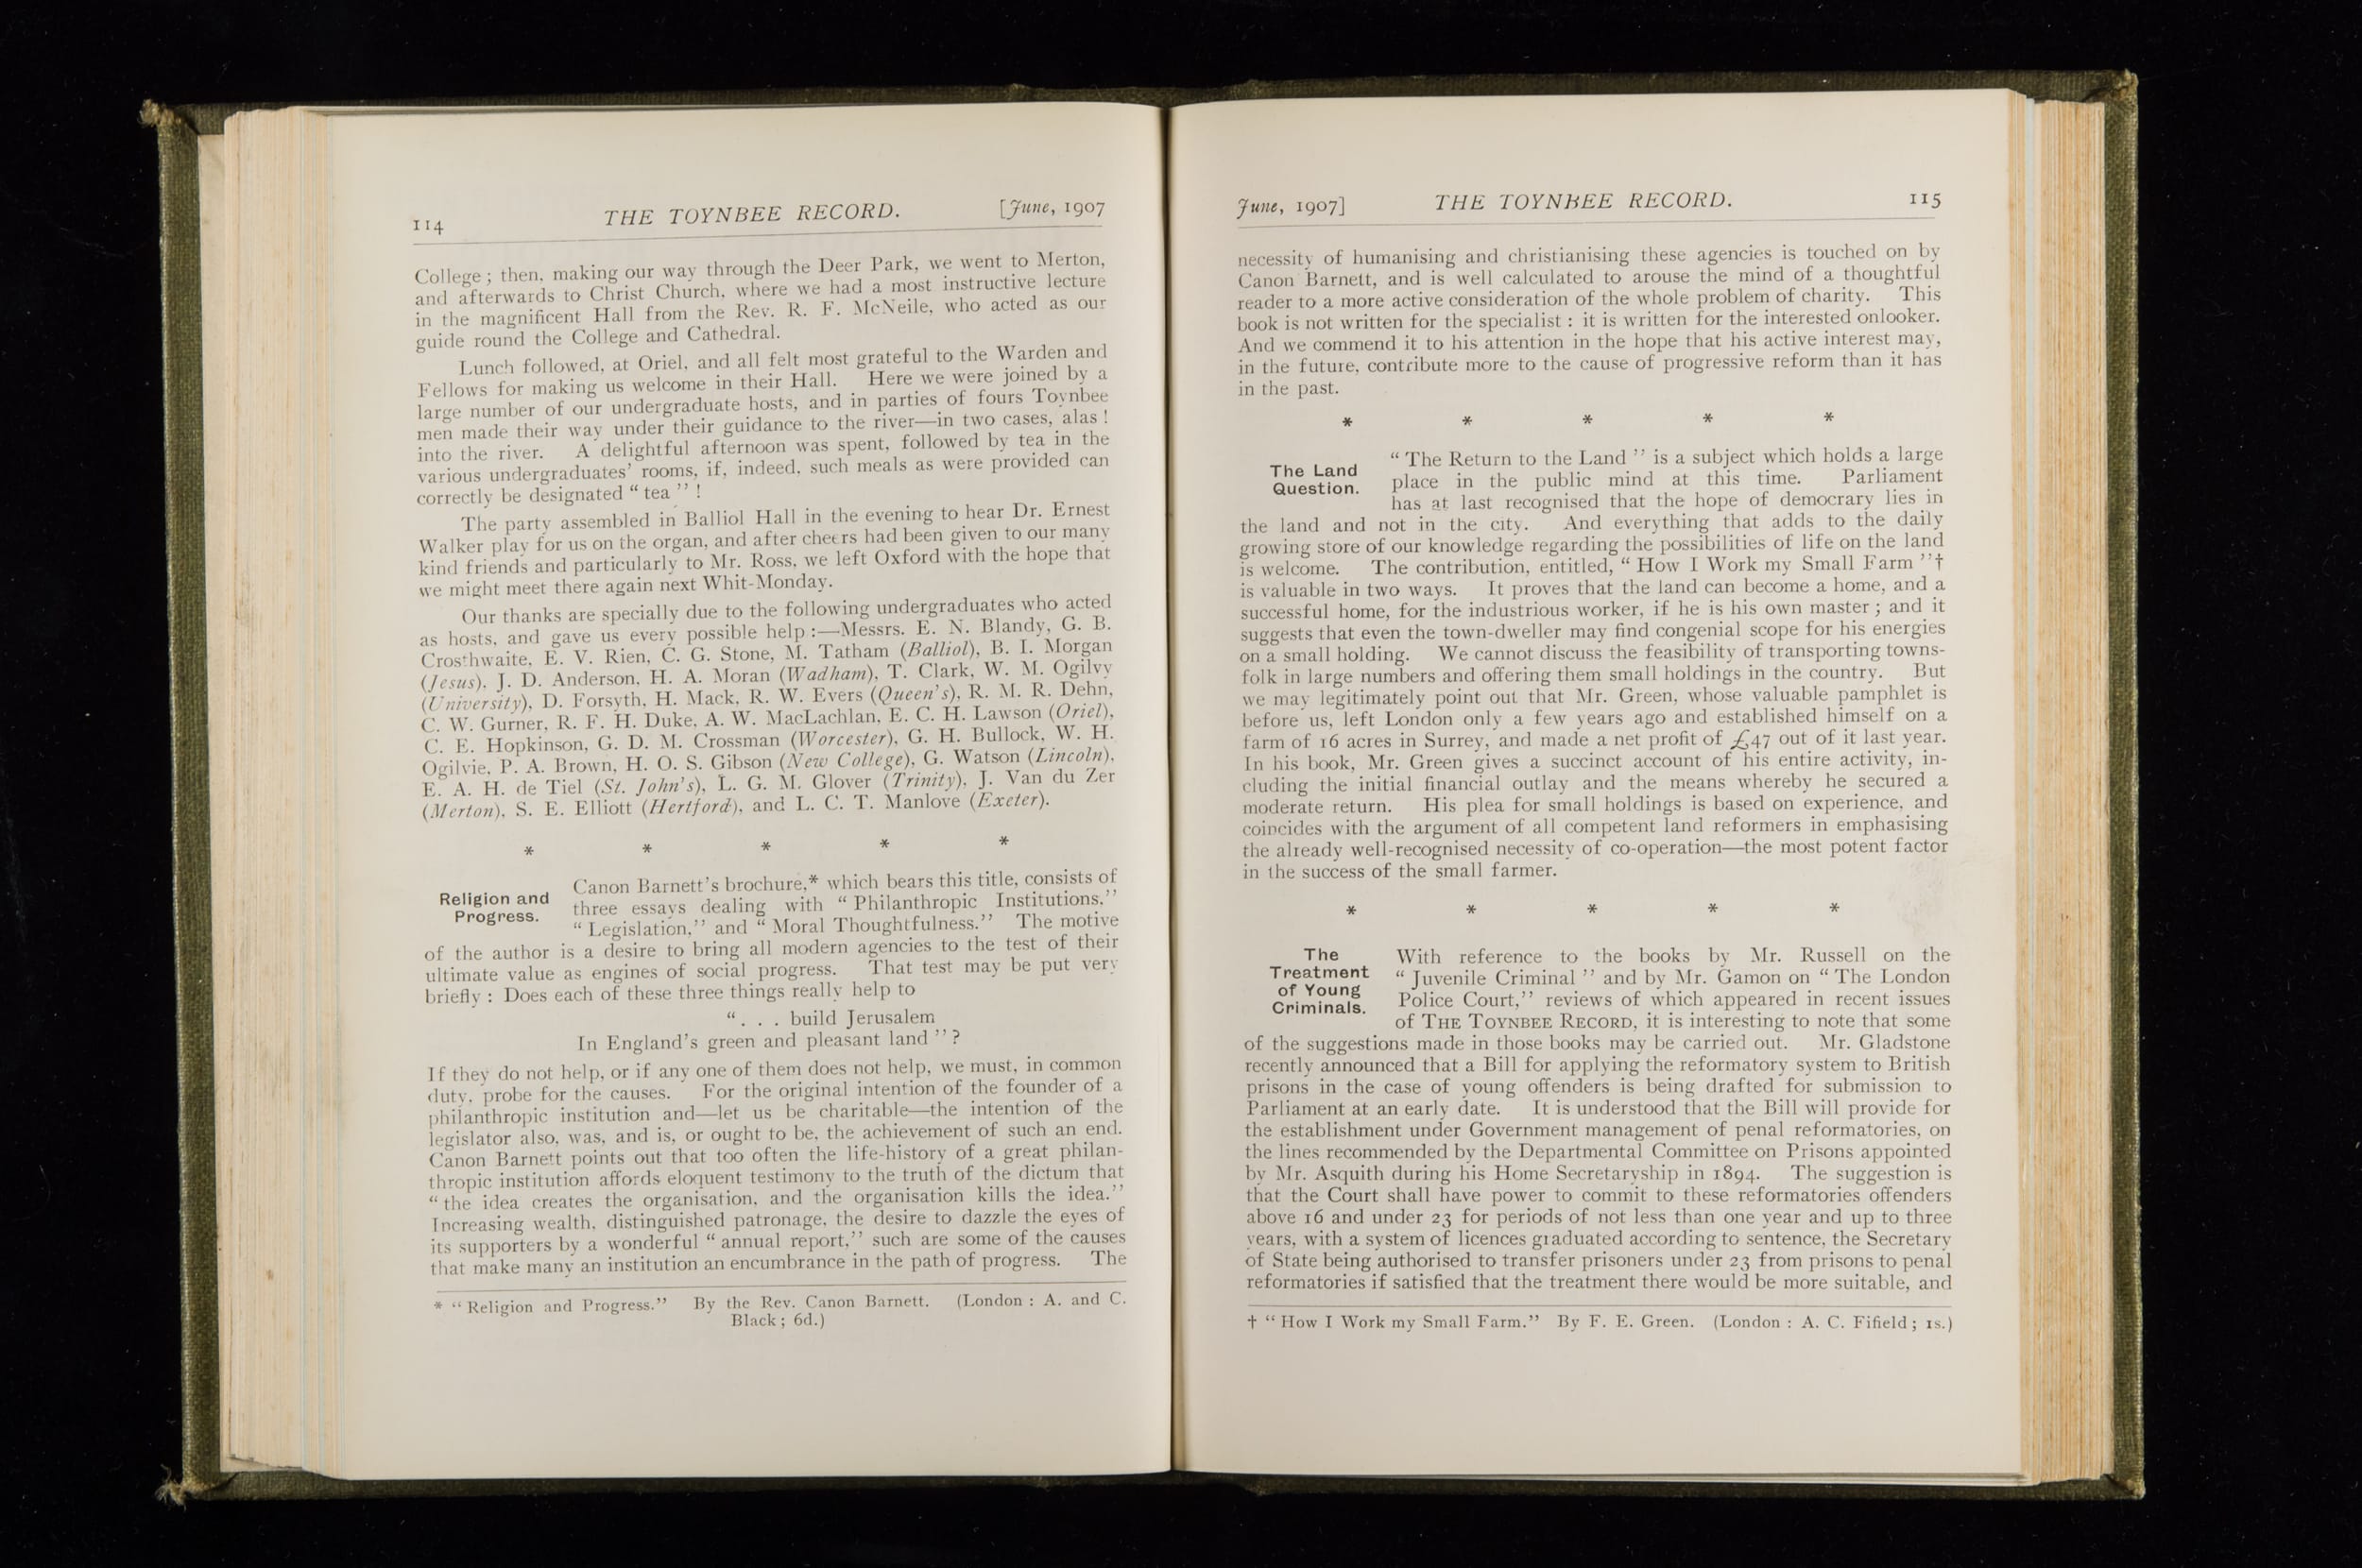 114 THE TOYNBEE RECORD. [June, 1907
College; then, making our way through the Deer Park, we went to Merton,
and afterwards to Christ Church, where we had a most instructive lecture
in the magnificent Hall from the Rev. R. F. McNeile, who acted as our
guide round the College and Cathedral.
Lunch followed, at Oriel, and all felt most grateful to the Warden and
Fellows for making us welcome in their Hall. Here we were joined by a
large number of our undergraduate hosts, and in parties of fours Toynbee
men made their way under their guidance to the river—in two cases, alas!
into the river. A delightful afternoon was spent, followed by tea in the
various undergraduates' rooms, if, indeed, such meals as were provided can
correctly be designated “tea”!
The party assembled in Balliol Hall in the evening to hear Dr. Ernest
Walker play for us on the organ, and after cheers had been given to our many
kind friends and particularly to Mr. Ross, we left Oxford with the hope that
we might meet there again next Whit-Monday.
Our thanks are specially due to the following undergraduates who acted
as hosts, and gave us every possible help:—Messrs. E. N. Blandy, G. B.
Crosthwaite, E. V. Rien, C. G. Stone, M. Tatham (Balliol), B. I. Morgan
(Jesus), J. D. Anderson, H. A. Moran (Wadham), T. Clark, W. M. Ogilvy
(University), D. Forsyth, H. Mack, R. W. Evers (Queen's), R. M. R. Dehn,
C. W. Gurner, R. F. H. Duke, A. W. MacLachlan, E. C. H. Lawson (Oriel),
C. E. Hopkinson, G. D. M. Crossman (Worcester), G. H. Bullock, W. H.
Ogilvie, P. A. Brown, H. O. S. Gibson (New College), G. Watson (Lincoln),
E. A. H. de Tiel (St. John's), L. G. M. Glover (Trinity), J. Van du Zer
(Merton), S. E. Elliott (Hertford), and L. C. T. Manlove (Exeter).
* * * * *
Religion and
Progress.
Canon Barnett's brochure,* which bears this title, consists of
three essays dealing with “Philanthropic Institutions.”
“Legislation,” and “Moral Thoughtfulness.” The motive
of the author is a desire to bring all modern agencies to the test of their
ultimate value as engines of social progress. That test may be put very
briefly: Does each of these three things really help to
“. . . build Jerusalem
In England's green and pleasant land”?
If they do not help, or if any one of them does not help, we must, in common
duty, probe for the causes. For the original intention of the founder of a
philanthropic institution and—let us be charitable—the intention of the
legislator also, was, and is, or ought to be, the achievement of such an end.
Canon Barnett points out that too often the life-history of a great philan-
thropic institution affords eloquent testimony to the truth of the dictum that
“the idea creates the organisation, and the organisation kills the idea.”
Increasing wealth, distinguished patronage, the desire to dazzle the eyes of
its supporters by a wonderful “annual report,” such are some of the causes
that make many an institution an encumbrance in the path of progress. The
* “Religion and Progress.” By the Rev. Canon Barnett. (London: A. and C.
Black; 6d.)
June, 1907] THE TOYNBEE RECORD. 115
necessity of humanising and christianising these agencies is touched on by
Canon Barnett, and is well calculated to arouse the mind of a thoughtful
reader to a more active consideration of the whole problem of charity. This
book is not written for the specialist: it is written for the interested onlooker.
And we commend it to his attention in the hope that his active interest may,
in the future, contribute more to the cause of progressive reform than it has
in the past.
* * * * *
The Land
Question.
“The Return to the Land” is a subject which holds a large
place in the public mind at this time. Parliament
has at last recognised that the hope of democrary lies in
the land and not in the city. And everything that adds to the daily
growing store of our knowledge regarding the possibilities of life on the land
is welcome. The contribution, entitled, “How I Work my Small Farm”†
is valuable in two ways. It proves that the land can become a home, and a
successful home, for the industrious worker, if he is his own master; and it
suggests that even the town-dweller may find congenial scope for his energies
on a small holding. We cannot discuss the feasibility of transporting towns-
folk in large numbers and offering them small holdings in the country. But
we may legitimately point out that Mr. Green, whose valuable pamphlet is
before us, left London only a few years ago and established himself on a
farm of 16 acres in Surrey, and made a net profit of £47 out of it last year.
In his book, Mr. Green gives a succinct account of his entire activity, in-
cluding the initial financial outlay and the means whereby he secured a
moderate return. His plea for small holdings is based on experience, and
coincides with the argument of all competent land reformers in emphasising
the already well-recognised necessity of co-operation—the most potent factor
in the success of the small farmer.
* * * * *
The
Treatment
of Young
Criminals.
With reference to the books by Mr. Russell on the
“Juvenile Criminal” and by Mr. Gamon on “The London
Police Court,” reviews of which appeared in recent issues
of THE TOYNBEE RECORD, it is interesting to note that some
of the suggestions made in those books may be carried out. Mr. Gladstone
recently announced that a Bill for applying the reformatory system to British
prisons in the case of young offenders is being drafted for submission to
Parliament at an early date. It is understood that the Bill will provide for
the establishment under Government management of penal reformatories, on
the lines recommended by the Departmental Committee on Prisons appointed
by Mr. Asquith during his Home Secretaryship in 1894. The suggestion is
that the Court shall have power to commit to these reformatories offenders
above 16 and under 23 for periods of not less than one year and up to three
years, with a system of licences graduated according to sentence, the Secretary
of State being authorised to transfer prisoners under 23 from prisons to penal
reformatories if satisfied that the treatment there would be more suitable, and
† “How I Work my Small Farm.” By F. E. Green. (London: A. C. Fifield; 1s.)